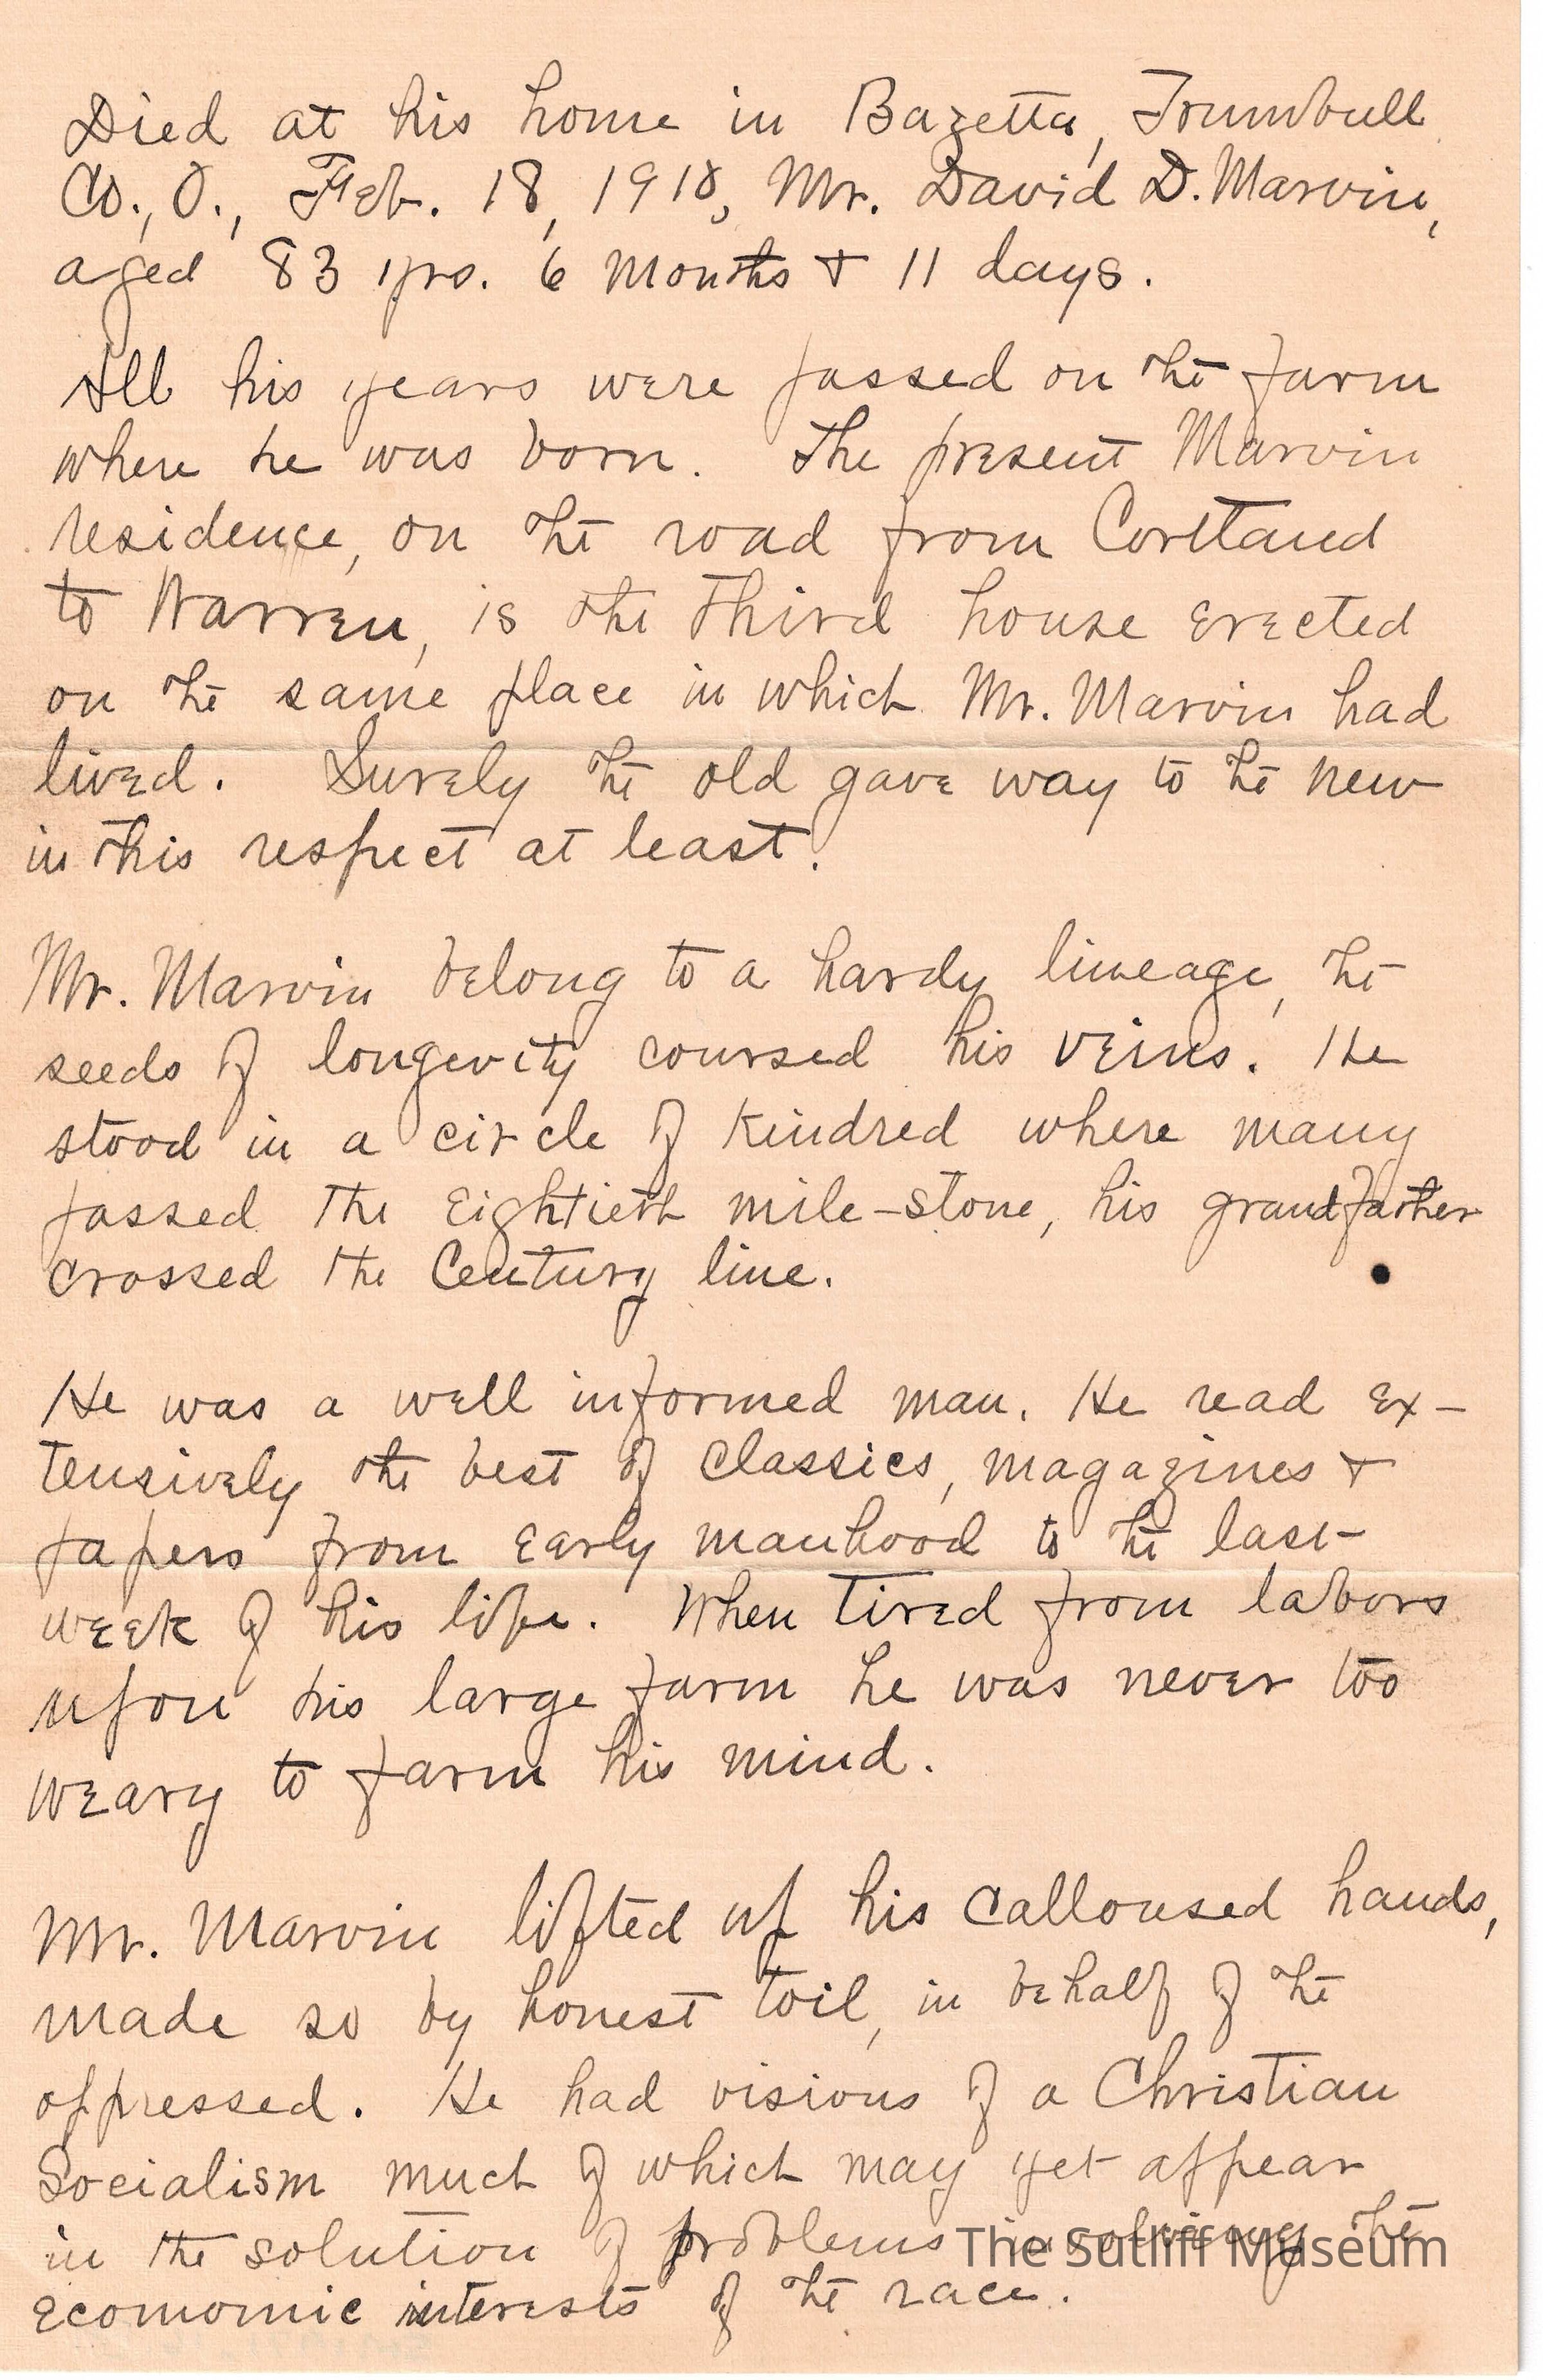 Died at his home in Bazetta, Trumbull
Co., O., Feb. 18, 1918, Mr. David D. Marvin,
aged 83 yrs. 6 months & 11 days.
All his years were passed on the farm
where he was born. The present Marvin
residence, on the road from Cortland
to Warren, is the third house erected
on the same place in which Mr. Marvin had
lived. Surely the old gave way to the new
in this respect at least.
Mr. Marvin belong to a hardy lineage, the
seeds of longevity coursed his veins. He
stood in a circle of kindred where many
passed the eightieth mile-stone, his grandfather
crossed the Century line.
He was a well informed man. He read ex-
tensively the best of classics, magazines &
papers from early manhood to the last
week of his life. When tired from labors
upon his large farm he was never too
weary to farm his mind.
Mr. Marvin lifted up his calloused hands,
made so by honest toil, in behalf of the
oppressed. He had visions of a Christian
Socialism much of which may yet appear
in the solution of problems involving the
economic interests of the race.
The Sutliff Museum